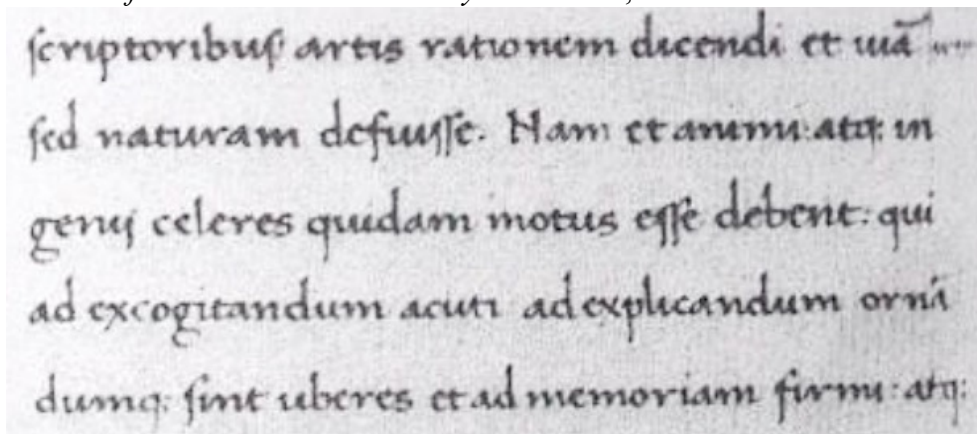 ſcriptoribuſ artis rationem dicendi et uiā
ſed naturam defuiſſe. Nam et animi: atq: in
genij celeres quidam motus eſſe debent: qui
ad excogitandum acuti ad explicandum ornā
dumq: ſint uberes et ad memoriam firmi: atq: